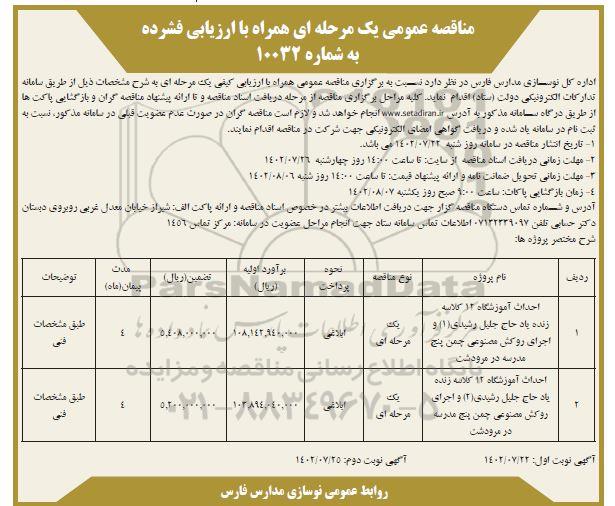 مناقصه عمومی یک مرحله ای همراه با ارزیابی فشرده
به شماره ۱۰۰۳۲
اداره کل نوسازی مدارس فارس در نظر دارد نسبت به برگزاری مناقصه عمومی همراه با ارزیابی کیفی یک مرحله ای به شرح مشخصات ذیل از طریق سامانه
تدارکات الکترونیکی دولت (ستاد) اقدام نماید. کلیه مراحل برگزاری مناقصه از مرحله دریافت اسناد مناقصه و تا ارائه پیشنهاد مناقصه گران و بازگشایی پاکت ها
از طریق درگاه سامانه مذکور به آدرس www.setadiran.ir انجام خواهد شد و لازم است مناقصه گران در صورت عدم عضویت قبلی در سامانه مذکور، نسبت به
ثبت نام در سامانه یاد شده و دریافت گواهی امضای الکترونیکی جهت شرکت در مناقصه اقدام نمایند.
۱- تاریخ انتشار مناقصه در سامانه روز شنبه ۱۴۰۲/۰۷/۲۲ می باشد.
۲- مهلت زمانی دریافت اسناد مناقصه از سایت: تا ساعت ۱۴:۰۰ روز چهارشنبه ۱۴۰۲/۰۷/۲۶
۳- مهلت زمانی تحویل ضمانت نامه و ارائه پیشنهاد قیمت: تا ساعت ۱۴:۰۰ روز شنبه ۱۴۰۲/۰۸/۰۶
۴- زمان بازگشایی پاکات: ساعت ۹:۰۰ صبح روز یکشنبه ۱۴۰۲/۰۸/۰۷
آدرس و شماره تماس دستگاه مناقصه گزار جهت دریافت اطلاعات بیشتر در خصوص اسناد مناقصه و ارائه پاکت الف: شیراز خیابان معدل غربی روبروی دبستان
دکتر حسابی تلفن ۰۷۱۳۲۳۳۹۰۹۷ اطلاعات تماس سامانه ستاد جهت انجام مراحل عضویت در سامانه: مرکز تماس ۱۴۵۶
شرح مختصر پروژه ها:
ردیف | نام پروژه | نوع مناقصه | نحوه پرداخت | برآورد اولیه (ریال) | تضمین(ریال) | مدت پیمان(ماه) | توضیحات
۱ | احداث آموزشگاه ۱۲ کلاسه زنده یاد حاج جلیل رشیدی(۱) و اجرای روکش مصنوعی چمن پنج مدرسه در مرودشت | یک مرحله ای | ابلاغی | ۱۰۸,۱۴۲,۹۴۰,۰۰۰ | ۵,۴۰۸,۰۰۰,۰۰۰ | ۴ | طبق مشخصات فنی
۲ | احداث آموزشگاه ۱۲ کلاسه زنده یاد حاج جلیل رشیدی(۲) و اجرای روکش مصنوعی چمن پنج مدرسه در مرودشت | یک مرحله ای | ابلاغی | ۱۰۳,۸۹۴,۰۴۰,۰۰۰ | ۵,۲۰۰,۰۰۰,۰۰۰ | ۴ | طبق مشخصات فنی
آگهی نوبت اول: ۱۴۰۲/۰۷/۲۲ آگهی نوبت دوم: ۱۴۰۲/۰۷/۲۵
روابط عمومی نوسازی مدارس فارس
ParsNamadData
پایگاه اطلاع رسانی مناقصه و مزایده
۰۲۱-۸۸۳۴۹۶۷۰-۵